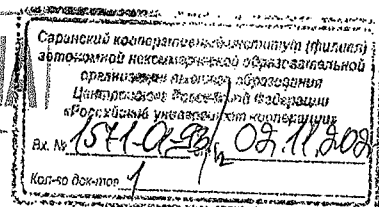 Саранский кооперативный институт (филиал)
автономной некоммерческой образовательной
организации высшего образования
Центросоюза Российской Федерации
«Российский университет кооперации»
Вх. № 02.11.202
Кол-во док-тов 1